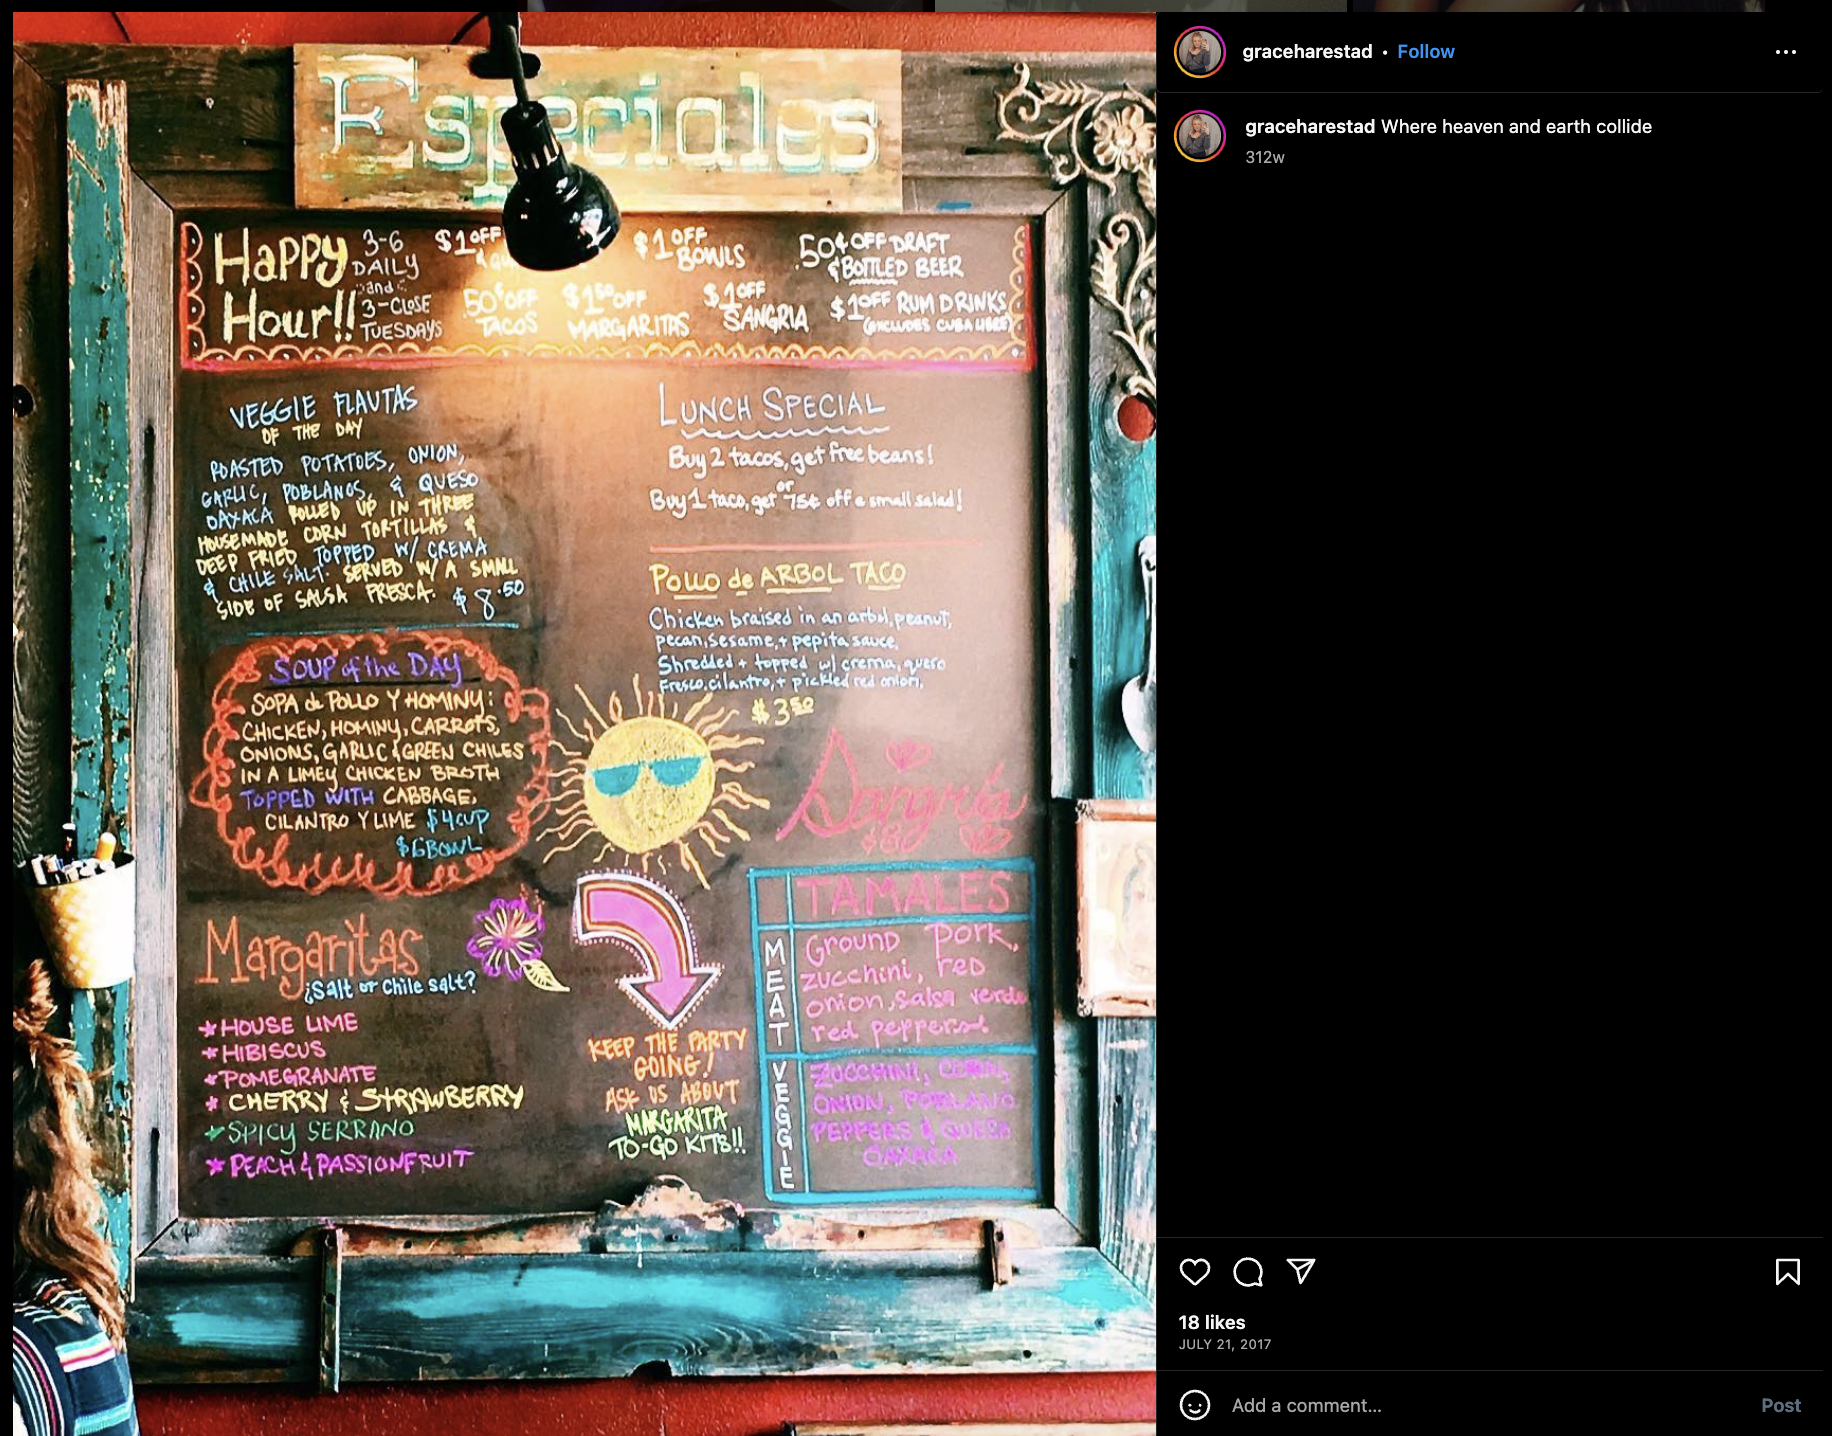 Especiales
Happy
Hour!!
3-6
DAILY
and
3-CLOSE
TUESDAYS
$1 OFF
$1 OFF
BOWLS
.50¢ OFF DRAFT
& BOTTLED BEER
.50¢ OFF
TACOS
$1.50 OFF
MARGARITAS
$1 OFF
SANGRIA
$1 OFF RUM DRINKS
(EXCLUDES CUBA LIBRE)
VEGGIE FLAUTAS
OF THE DAY
ROASTED POTATOES, ONION,
GARLIC, POBLANOS, & QUESO
OAXACA ROLLED UP IN THREE
HOUSEMADE CORN TORTILLAS &
DEEP FRIED TOPPED W/ CREMA
& CHILE SALT. SERVED W/ A SMALL
SIDE OF SALSA FRESCA. $8.50
LUNCH SPECIAL
Buy 2 tacos, get free beans!
or
Buy 1 taco, get 75¢ off a small salad!
POLLO de ARBOL TACO
Chicken braised in an arbol, peanut,
pecan, sesame, + pepita sauce.
Shredded + topped w/ crema, queso
Fresco, cilantro, + pickled red onion.
$3.50
SOUP of the DAY
SOPA de POLLO Y HOMINY:
CHICKEN, HOMINY, CARROTS,
ONIONS, GARLIC & GREEN CHILES
IN A LIMEY CHICKEN BROTH
TOPPED WITH CABBAGE,
CILANTRO Y LIME $4 CUP
$6 BOWL
Sangria
Margaritas
¿Salt or chile salt?
HOUSE LIME
HIBISCUS
POMEGRANATE
CHERRY & STRAWBERRY
SPICY SERRANO
PEACH & PASSIONFRUIT
KEEP THE PARTY
GOING!
ASK US ABOUT
MARGARITA
TO-GO KITS!!
TAMALES
MEAT
Ground pork,
zucchini, red
onion, salsa verde
red peppers
VEGGIE
ZUCCHINI, CORN,
ONION, POBLANO
PEPPERS & QUESO
OAXACA
graceharestad • Follow
graceharestad Where heaven and earth collide
312w
18 likes
JULY 21, 2017
Add a comment...
Post